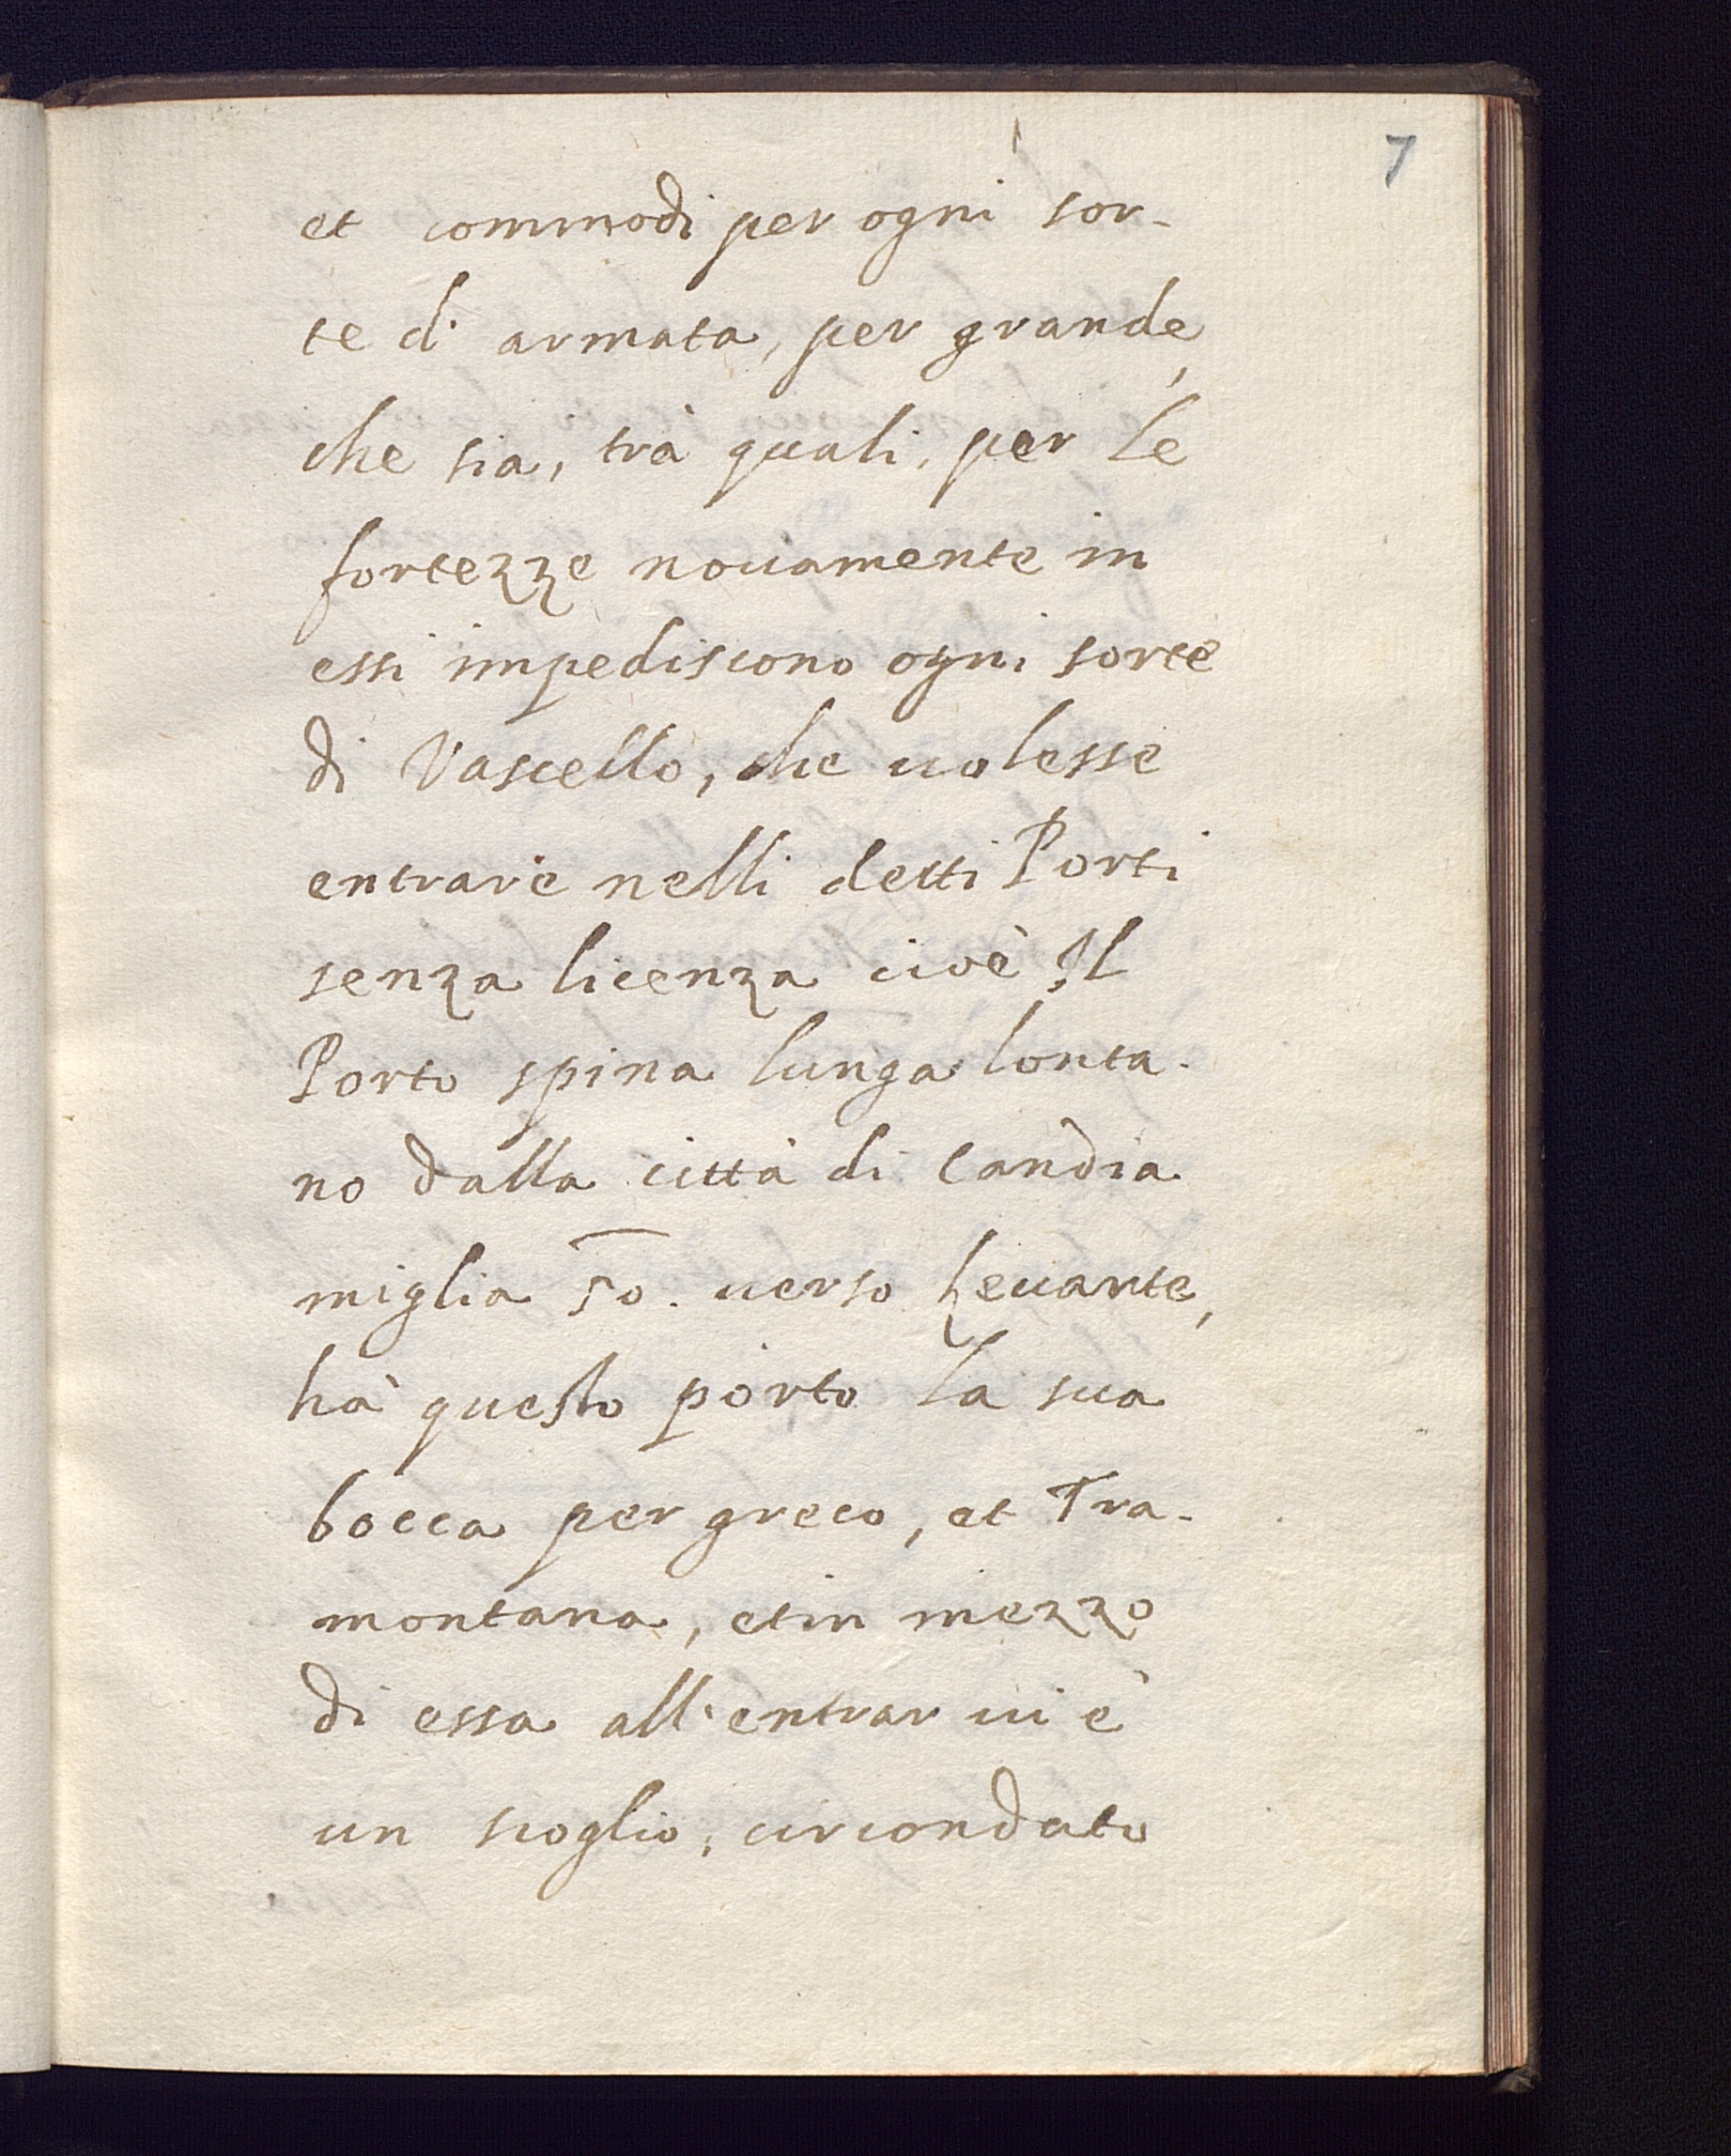 7
et commodi per ogni sor-
te d' armata, per grande,
che sia, trà quali, per le
fortezze nouamente in
essi impediscono ogni sorte
di Vascello, che uolesse
entrare nelli detti Porti
senza licenza cioè Il
Porto spina lunga lonta-
no dalla città di Candia
miglia 50. uerso Leuante,
hà questo porto la sua
bocca per greco, et Tra-
montana, et in mezzo
di essa all' entrar ui è
un scoglio, circondato